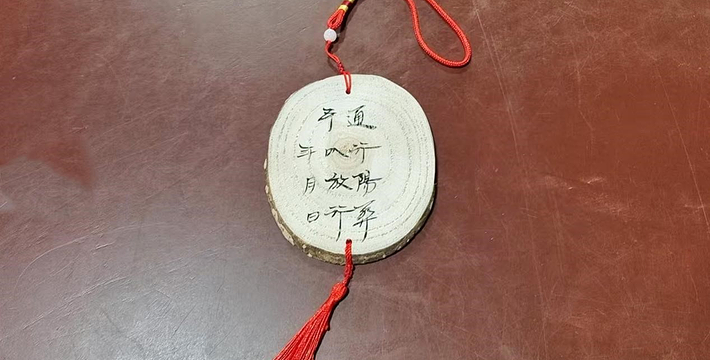 通行陽
予以放行
年月日